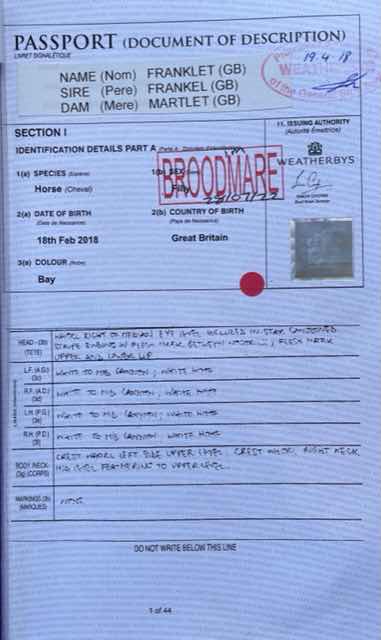 PASSPORT (DOCUMENT OF DESCRIPTION)
LIVRET SIGNALÉTIQUE
19.4.18
NAME (Nom) FRANKLET (GB)
SIRE (Pere) FRANKEL (GB)
DAM (Mere) MARTLET (GB)
SECTION I
11. ISSUING AUTHORITY
(Autorité Émettrice)
IDENTIFICATION DETAILS PART A
WEATHERBYS
1(a) SPECIES
1(b) SEX
BROODMARE
Horse (Cheval)
Filly
2(a) DATE OF BIRTH
(Date de Naissance)
2(b) COUNTRY OF BIRTH
(Pays de Naissance)
18th Feb 2018
Great Britain
3(a) COLOUR (Robe)
Bay
HEAD (3b)
(TETE)
WHORL RIGHT OF MEDIAN EYE LEVEL INCLUDED IN STAR CONJOINED
STRIPE ENDING IN FLESH MARK BETWEEN NOSTRILS; FLESH MARK
UPPER AND LOWER LIP
L.F. (A.G.)
(3c)
WHITE TO MID CANNON; WHITE HOOF
R.F. (A.D.)
WHITE TO MID CANNON; WHITE HOOF
L.H. (P.G.)
WHITE TO MID CANNON; WHITE HOOF
R.H. (P.D.)
WHITE TO MID CANNON; WHITE HOOF
BODY NECK
(3g) (CORPS)
CREST WHORL LEFT SIDE UPPER LEVEL. CREST WHORL RIGHT NECK
MID LEVEL FEATHERING TO UPPER LEVEL.
MARKINGS
(MARQUES)
NONE
DO NOT WRITE BELOW THIS LINE
1 of 44